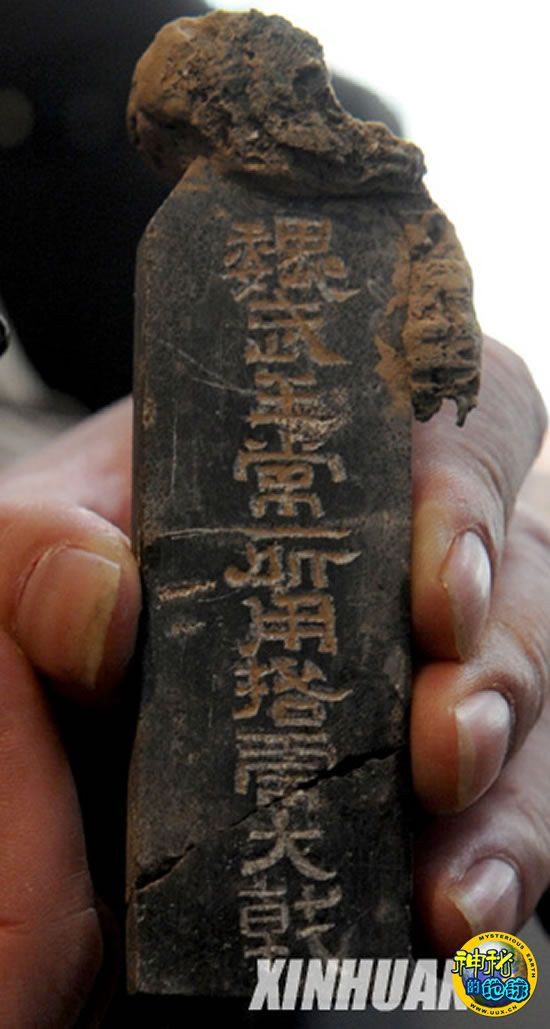 魏武王常所用挌虎大戟
XINHUAN
MYSTERIOUS EARTH
神秘
的地球
WWW.UUX.CN